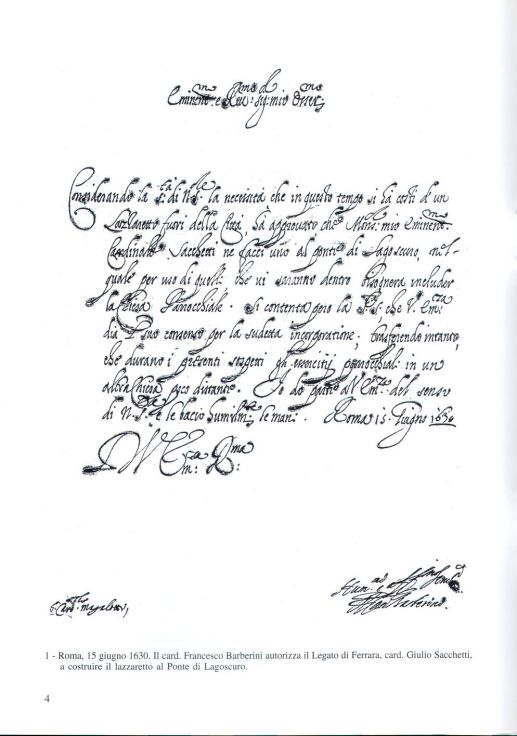 Eminen.mo e Rev.mo sig.r mio Osser.mo
Considerando la S.tà di N.S.re la necessità, che in questo tempo si ha costì d'un
Lazzaretto fuori della Città, ha approvato che Mons.r mio Eminen.mo
Cardinale Sacchetti ne facci uno al ponte di Lagoscuro, nel
quale per uso di quelli che vi saranno dentro bisognerà includer
la Chiesa Parrocchiale. Si contenta però la S.tà S. che V. Em.za
dia il suo consenso per la sudetta incorporatione, trasferendo intanto,
che durano i presenti sospetti gli esercitij parrocchiali in un
altra Chiesa poco distante. Io do parte a V. Em.za del senso
di N.S.re e le bacio humilm.te le mani. Roma 15. Giugno 1630
D V Em.za R.ma
Card. Magalotti
Hum.mo
Barberino.
1 - Roma, 15 giugno 1630. Il card. Francesco Barberini autorizza il Legato di Ferrara, card. Giulio Sacchetti,
a costruire il lazzaretto al Ponte di Lagoscuro.
4